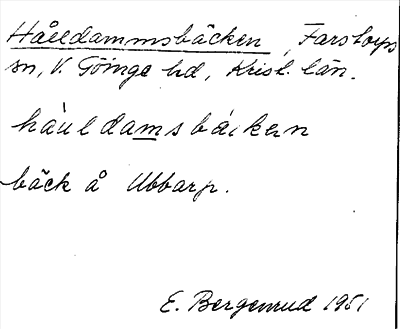 Hålldammsbäcken, Farstorps
sn, V. Göinge hd, Krist. län.
håuldamsbäcken
bäck å Ubbarp.
E. Bergenrud 1951